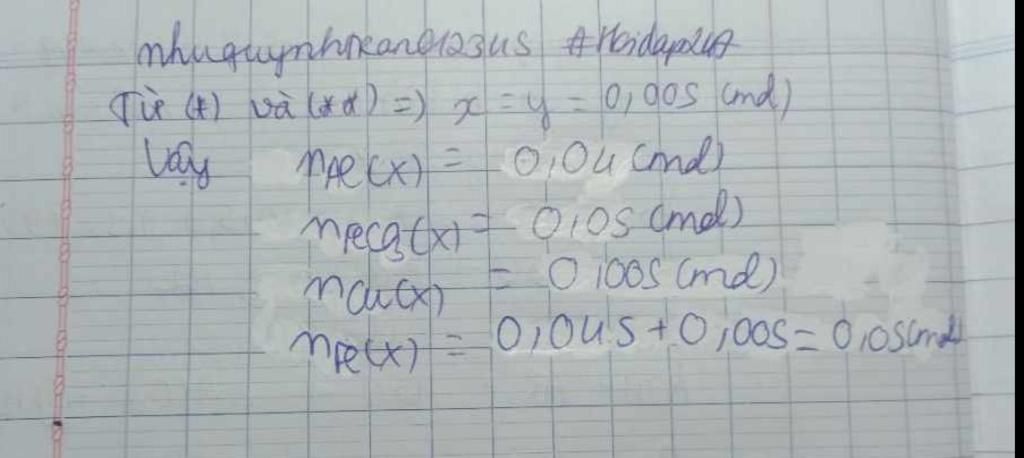 nhuquynhncan012345 #Hoidap247
Từ (*) và (**) => x = y = 0,005 (mol)
Vậy nAl(x) = 0,04 (mol)
nFeCl3(x) = 0,05 (mol)
nCu(x) = 0,005 (mol)
nFe(x) = 0,045 + 0,005 = 0,05 (mol)